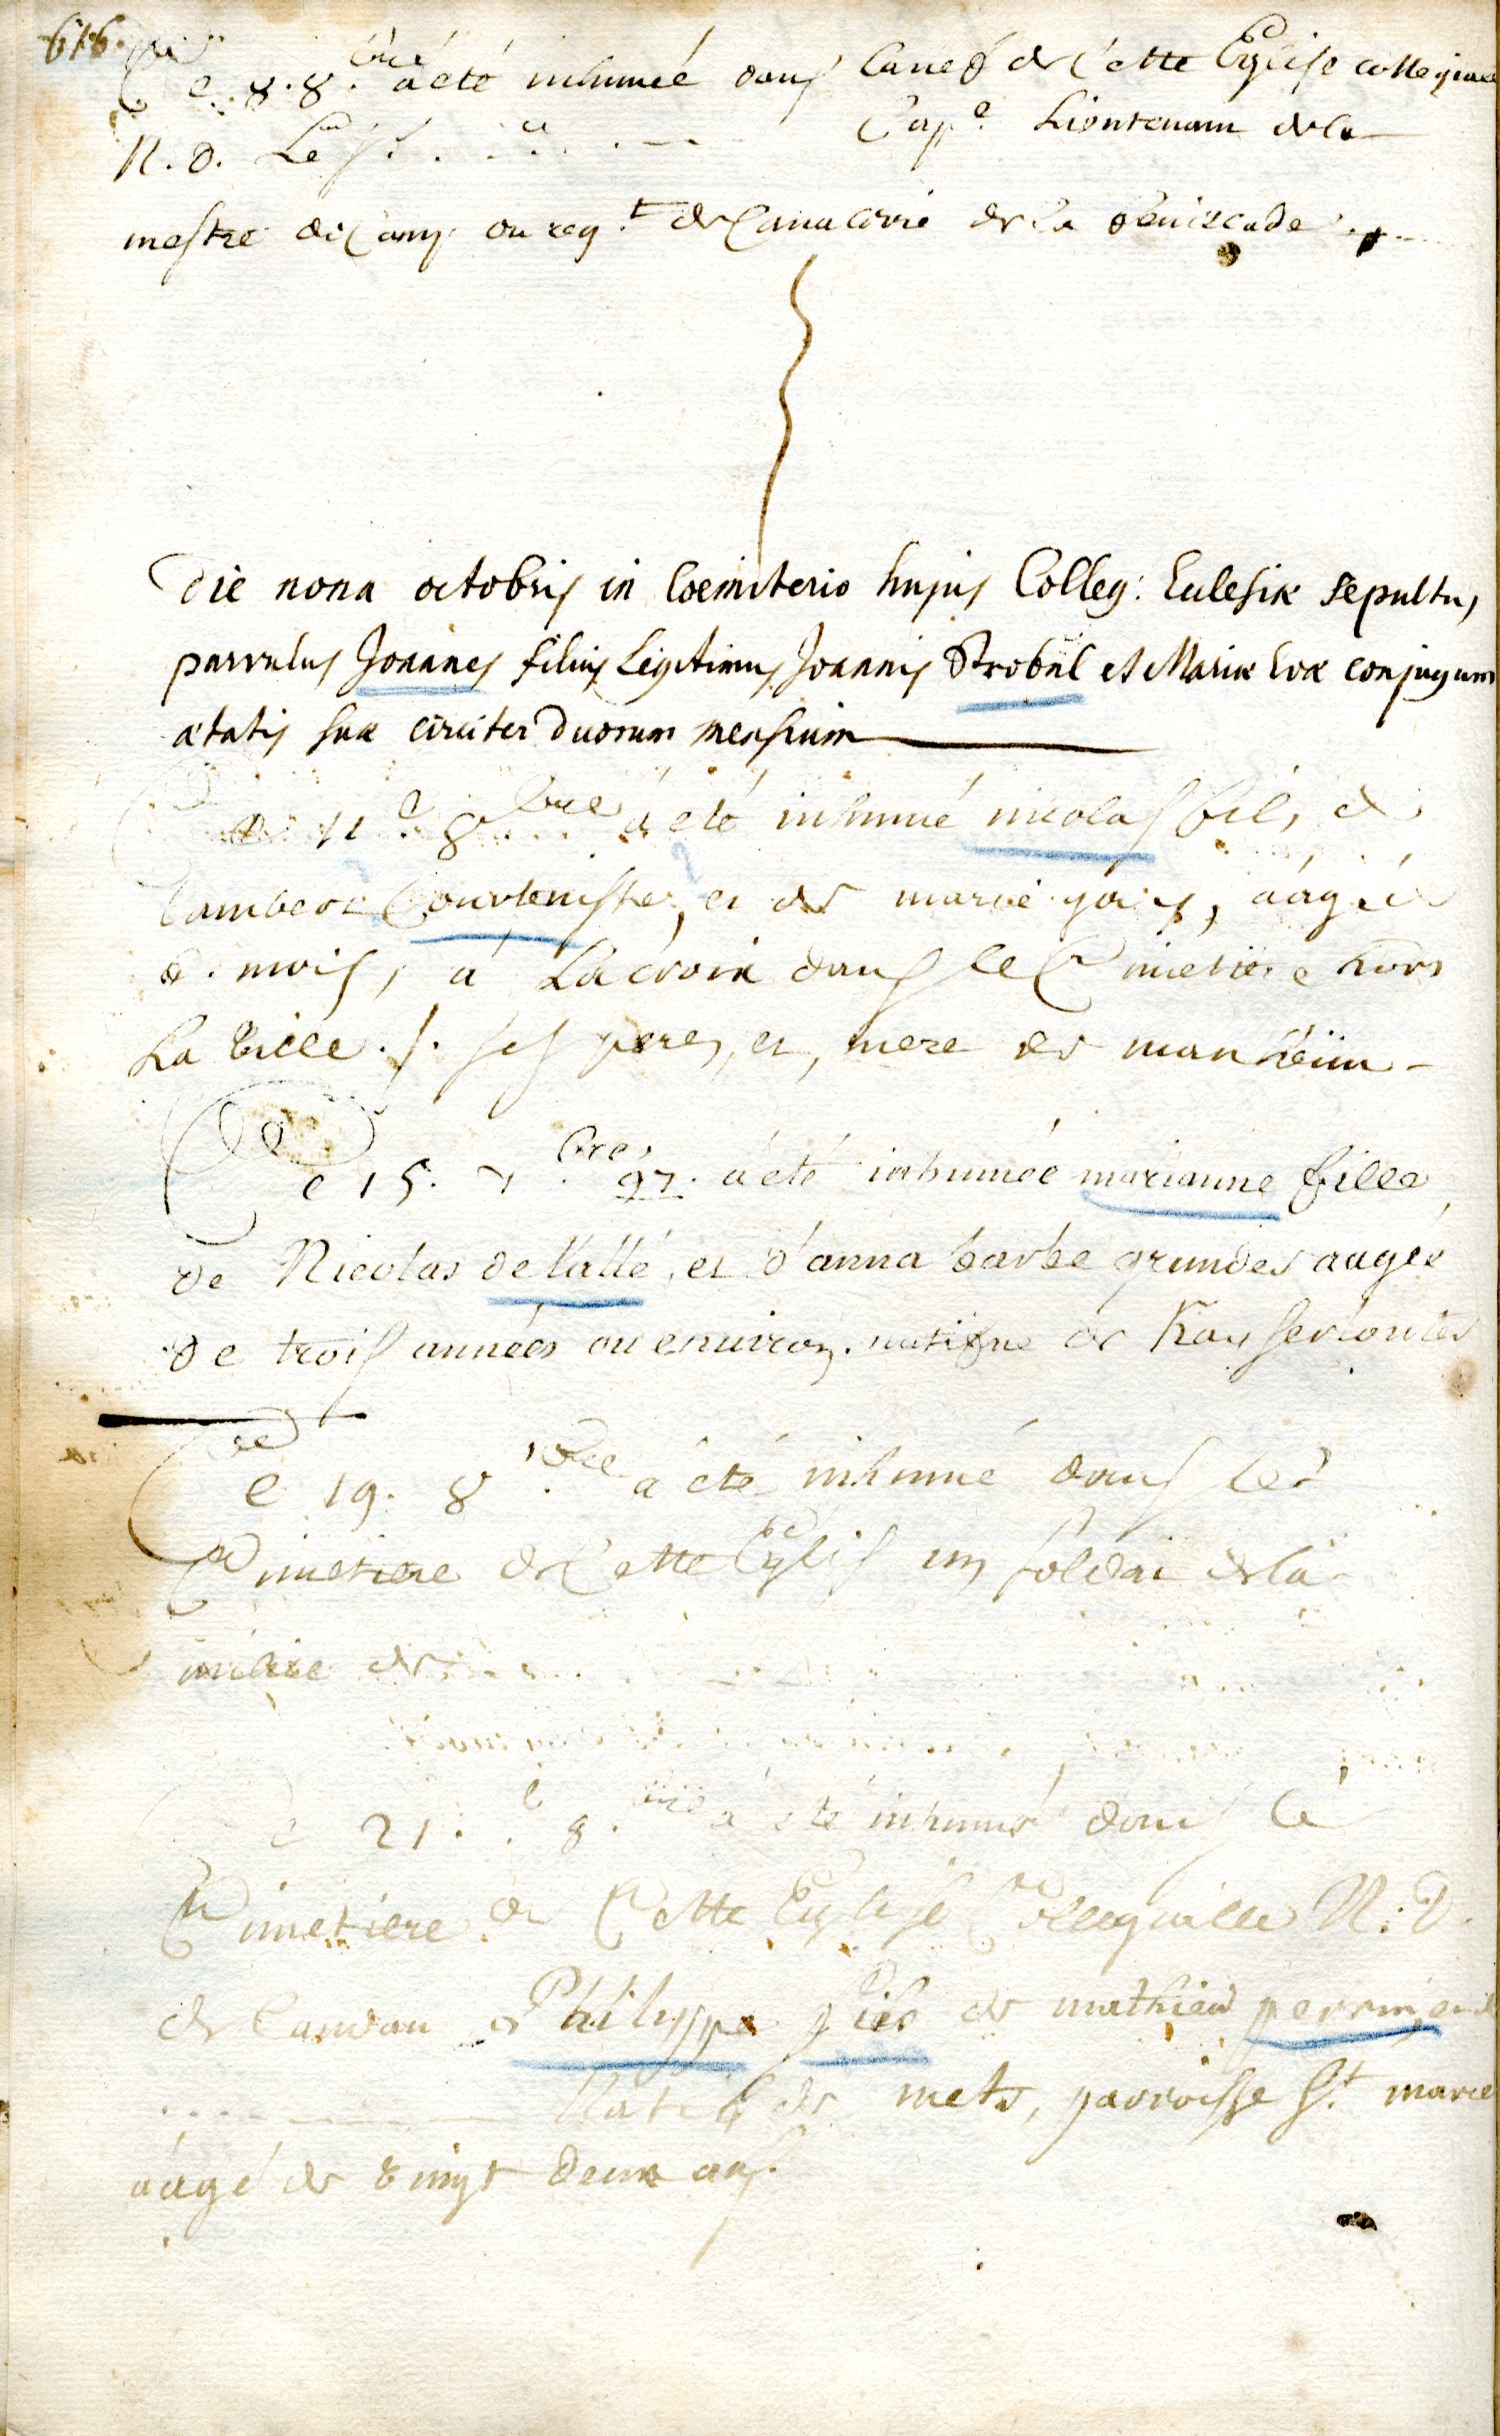 616.
Le 8. 8.bre a été inhumé dans la nef de Cette Eglise collegiale
N. D. Le Sr. . . . . . Cap.e Lieutenant de la
mestre de Camp du reg.t de Cavalerie de la
Die nona octobris in Coemiterio hujus Colleg: Eclesiæ sepultus
parvulus Joannes filius Legitimus Joannis Strobel et Mariæ Evæ conjugum
ætatis suæ circiter duorum mensium
Le 11.e 8.bre a été inhumé nicolas fils de
Lambert et de marie aagé
mois, a Lacroix dans le Cimetiere hors
La ville. ses pere, et, mere de manheim -
Le 15. 7.bre 97. a été inhumée marianne fille
de Nicolas delatté, et d'anna barbe grundes aagée
de trois années ou environ. natifve de
Le 19. 8.bre a été inhumé dans le
Cimetiere de Cette Eglise un soldat de la
de
Le 21.e 8.bre a été inhumé dans le
Cimetiere de Cette Eglise Collegialle N. D.
de Landau Philippe fils de mathieu perrin, et de
. . . . . . Natif de mets, parroisse St. marcel
aagé de vingt deux ans.